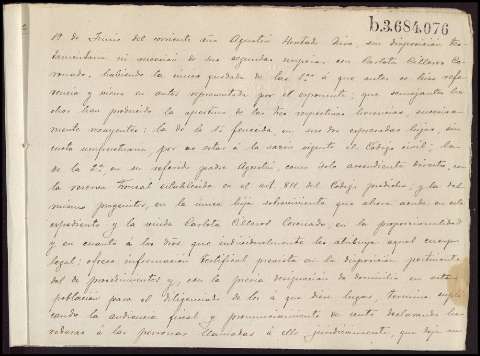 b.3.684.076
19 de Junio del corriente año Agustín Hurtado Diva, sin disposición tes-
tamentaria ni sucesión de sus segundas nupcias con Carlota Cilleros Co-
ronado, habiendo la única quedada de las 1as á que antes se hizo refe-
rencia y viene en autos representada por el exponente; que semejantes he-
chos han producido la apertura de las tres respectivas herencias, sucesiva-
mente enseguida: la de la 1ª fenecida, en sus dos expresadas hijas, sin
cuota usufructuaria, por no estar á la sazón vigente el Código civil; la
de la 2ª en su referido padre Agustín, como solo ascendiente directo, con
la reserva troncal establecida en el art. 811 del Código predicho, y la del
mismo progenitor, en la única hija sobreviviente que ahora acude en este
expediente y la viuda Carlota Cilleros Coronado, en la proporcionalidad
y en cuanto á los dros que individualmente les atribuye aquel cuerpo
legal; ofrece información testifical prevista en la disposición pertinente
del de procedimientos y, con la previa designación de domicilio en esta
población para el diligenciado de los á que diere lugar, termina supli-
cando la audiencia fiscal y pronunciamiento de auto declarando he-
rederas á las personas llamadas á ello jurídicamente, que deja enu-